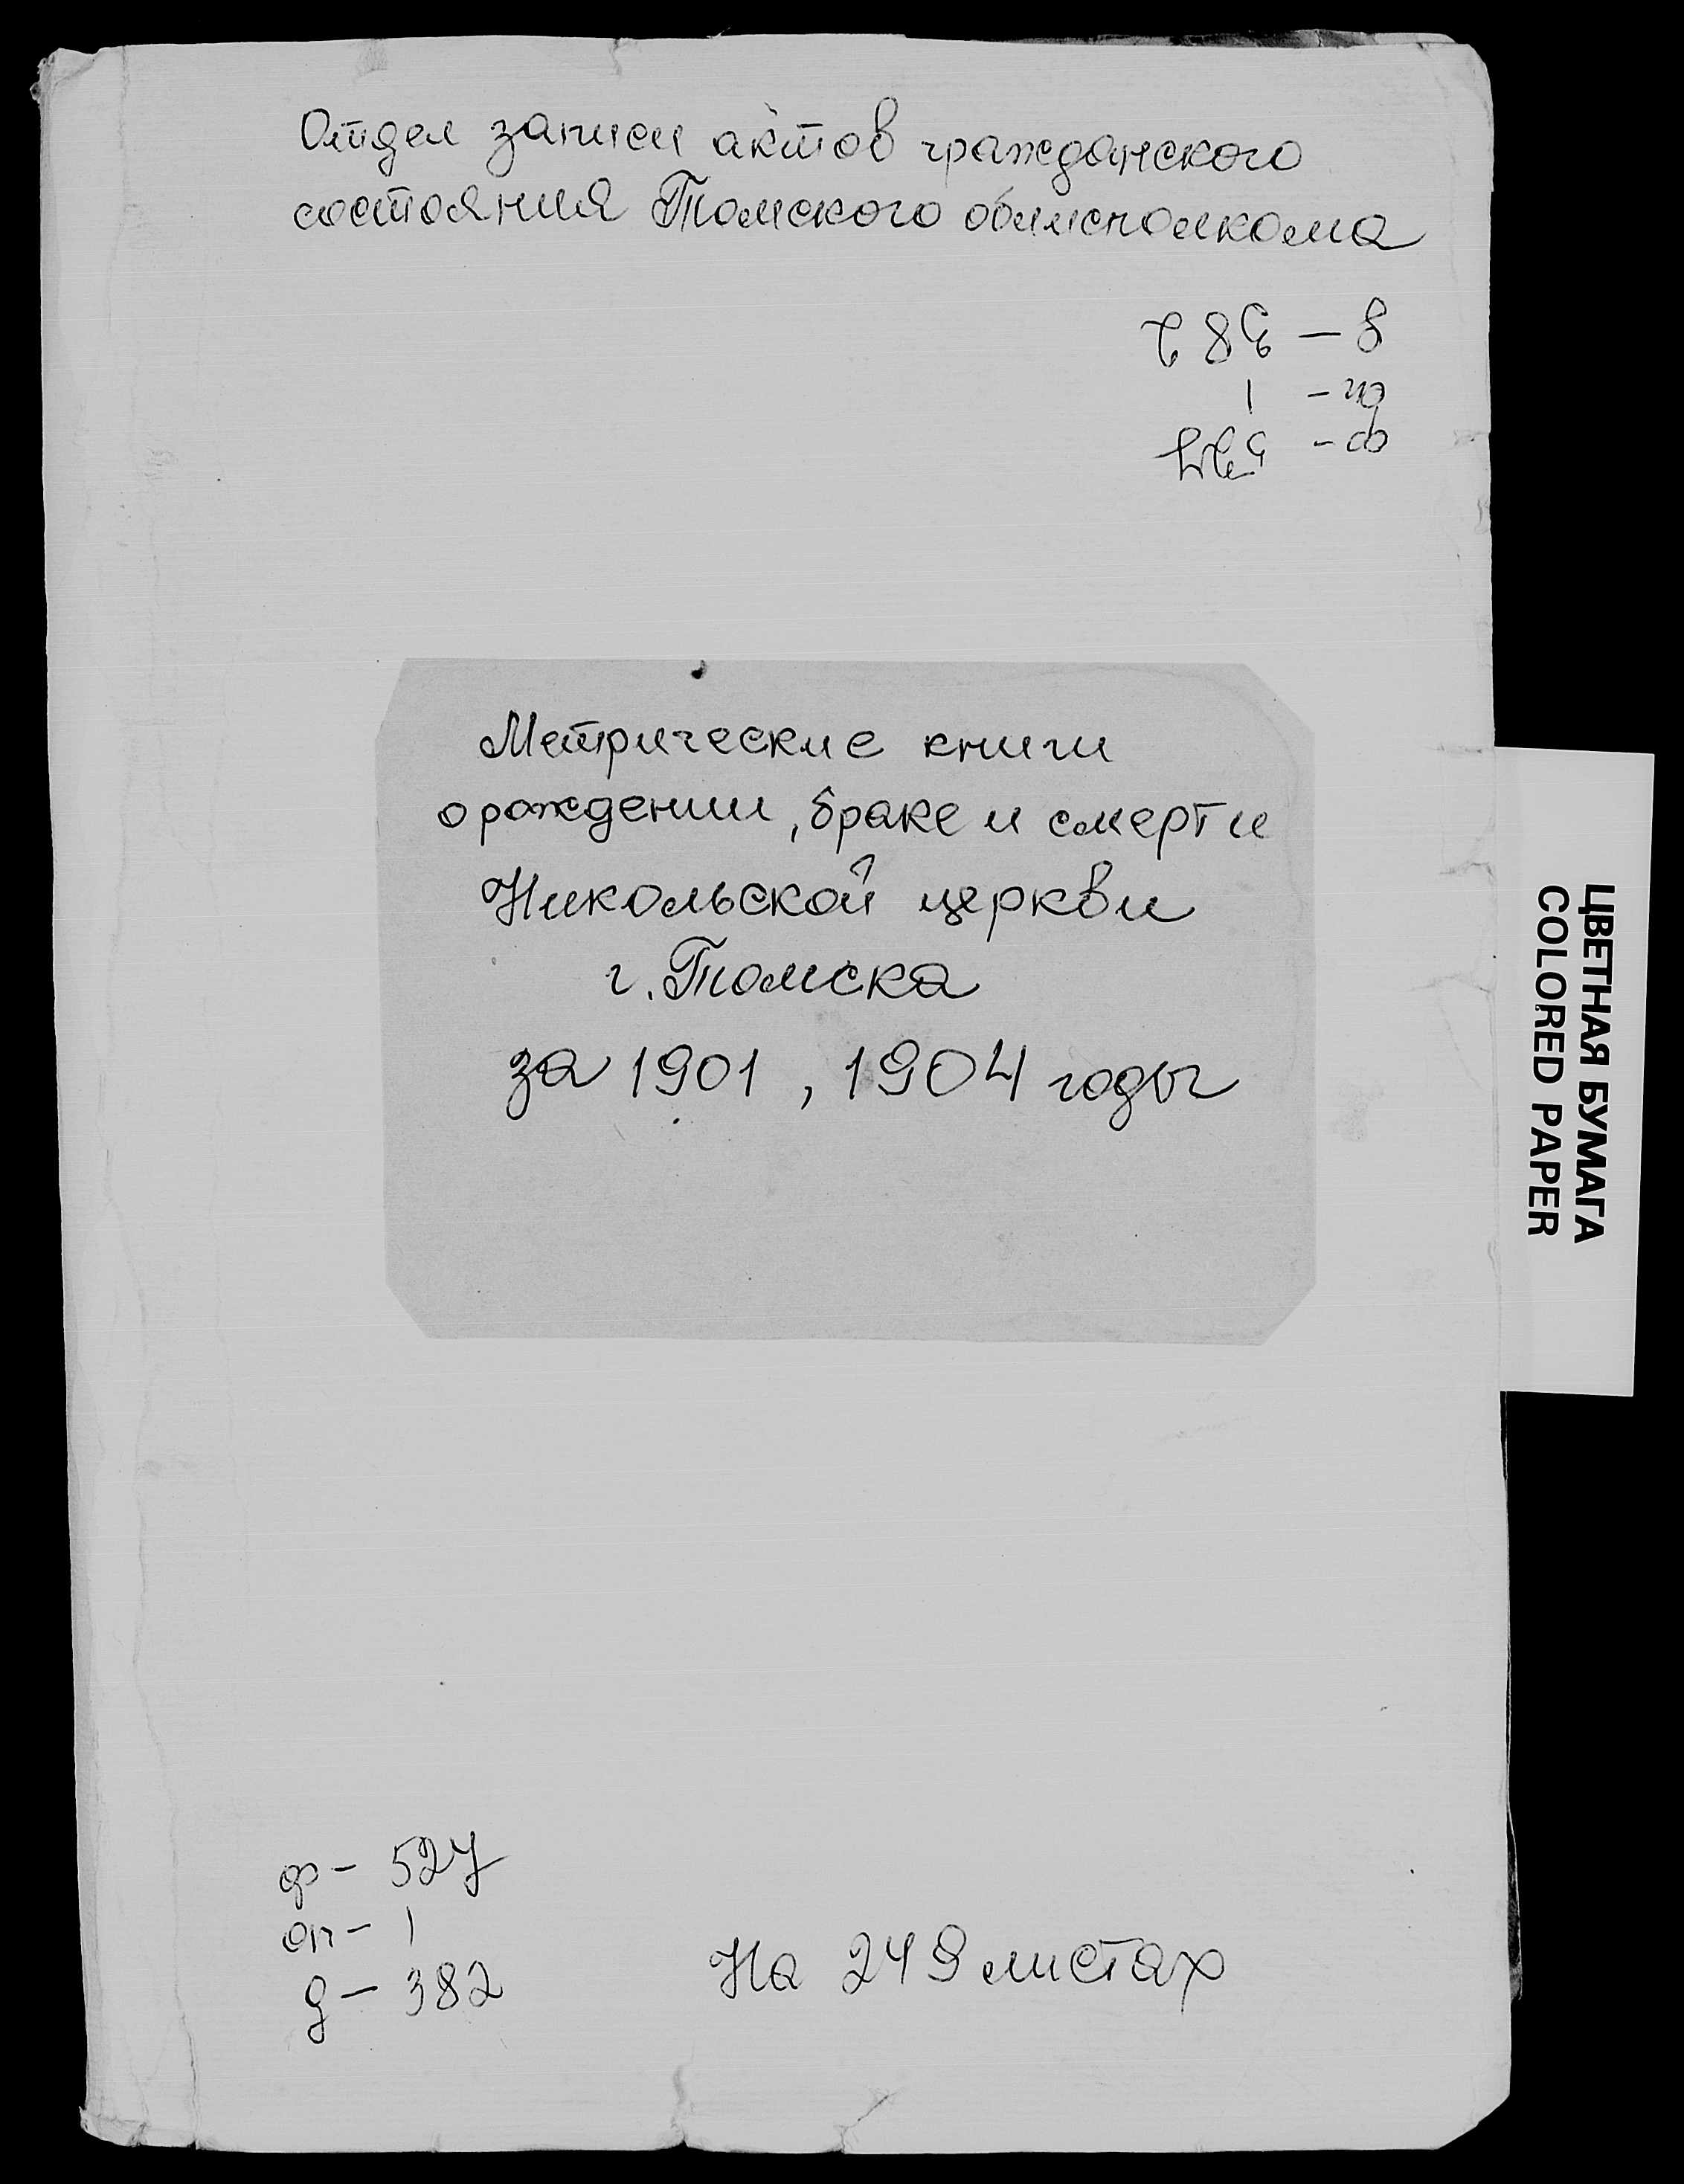 Отдел записи актов гражданского
состояния Томского облисполкома
д - 382
оп - 1
ф - 527
Метрические книги
о рождении, браке и смерти
Никольской церкви
г. Томска
за 1901, 1904 годы
ЦВЕТНАЯ БУМАГА
COLORED PAPER
ф - 527
оп - 1
д - 382
На 249 листах